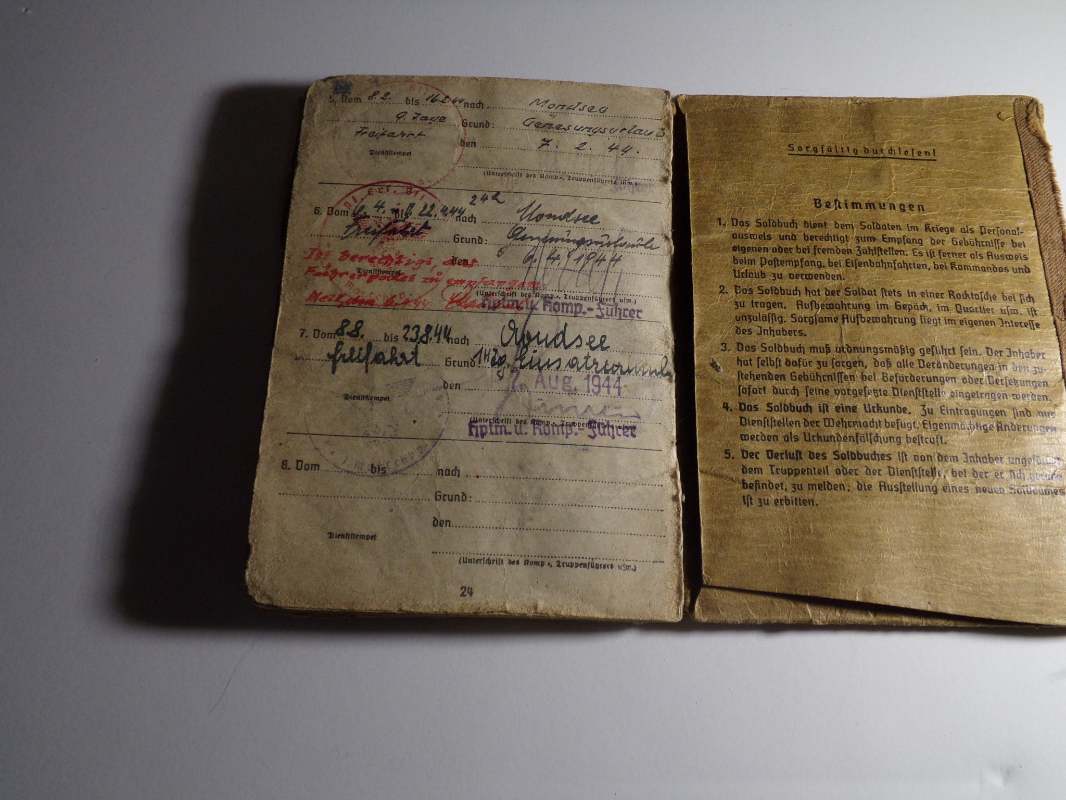 5. Vom 8.2. bis 16.2.44 nach Mondsee
9 Tage Grund: Genesungsurlaub
Freifahrt den 7. 2. 44.
Dienststempel
(Unterschrift des Komp., Truppenführers usw.)
6. Vom bis 22.4.44 nach Mondsee
Freifahrt Grund: Genesungsurlaub
Ist berechtigt, das den 6.4.1944
Führerpaket zu empfangen
Dienststempel
(Unterschrift des Komp., Truppenführers usw.)
Hptm. u. Komp.-Führer
7. Vom 8.8. bis 23.8.44 nach Mondsee
Freifahrt Grund: 14 tg. Einsatzurlaub
den 7. Aug. 1944
Dienststempel
(Unterschrift des Komp., Truppenführers
Hptm. u. Komp.-Führer
8. Vom bis nach
Grund:
den
Dienststempel
(Unterschrift des Komp., Truppenführers usw.)
24
Sorgfältig durchlesen!
Bestimmungen
1. Das Soldbuch dient dem Soldaten im Kriege als Personal-
ausweis und berechtigt zum Empfang der Gebührnisse bei
eigenen oder bei fremden Zahlstellen. Es ist ferner als Ausweis
beim Postempfang, bei Eisenbahnfahrten, bei Kommandos und
Urlaub zu verwenden.
2. Das Soldbuch hat der Soldat stets in einer Rocktasche bei sich
zu tragen. Aufbewahrung im Gepäck, im Quartier usw. ist
unzulässig. Sorgsame Aufbewahrung liegt im eigenen Interesse
des Inhabers.
3. Das Soldbuch muß ordnungsmäßig geführt sein. Der Inhaber
hat selbst dafür zu sorgen, daß alle Veränderungen in den zu-
stehenden Gebührnissen bei Beförderungen oder Versetzungen
sofort durch seine vorgesetzte Dienststelle eingetragen werden.
4. Das Soldbuch ist eine Urkunde. Zu Eintragungen sind nur
Dienststellen der Wehrmacht befugt. Eigenmächtige Änderungen
werden als Urkundenfälschung bestraft.
5. Der Verlust des Soldbuches ist von dem Inhaber
dem Truppenteil oder der Dienststelle, bei der er sich gerade
befindet, zu melden; die Ausstellung eines neuen Soldbuches
ist zu erbitten.